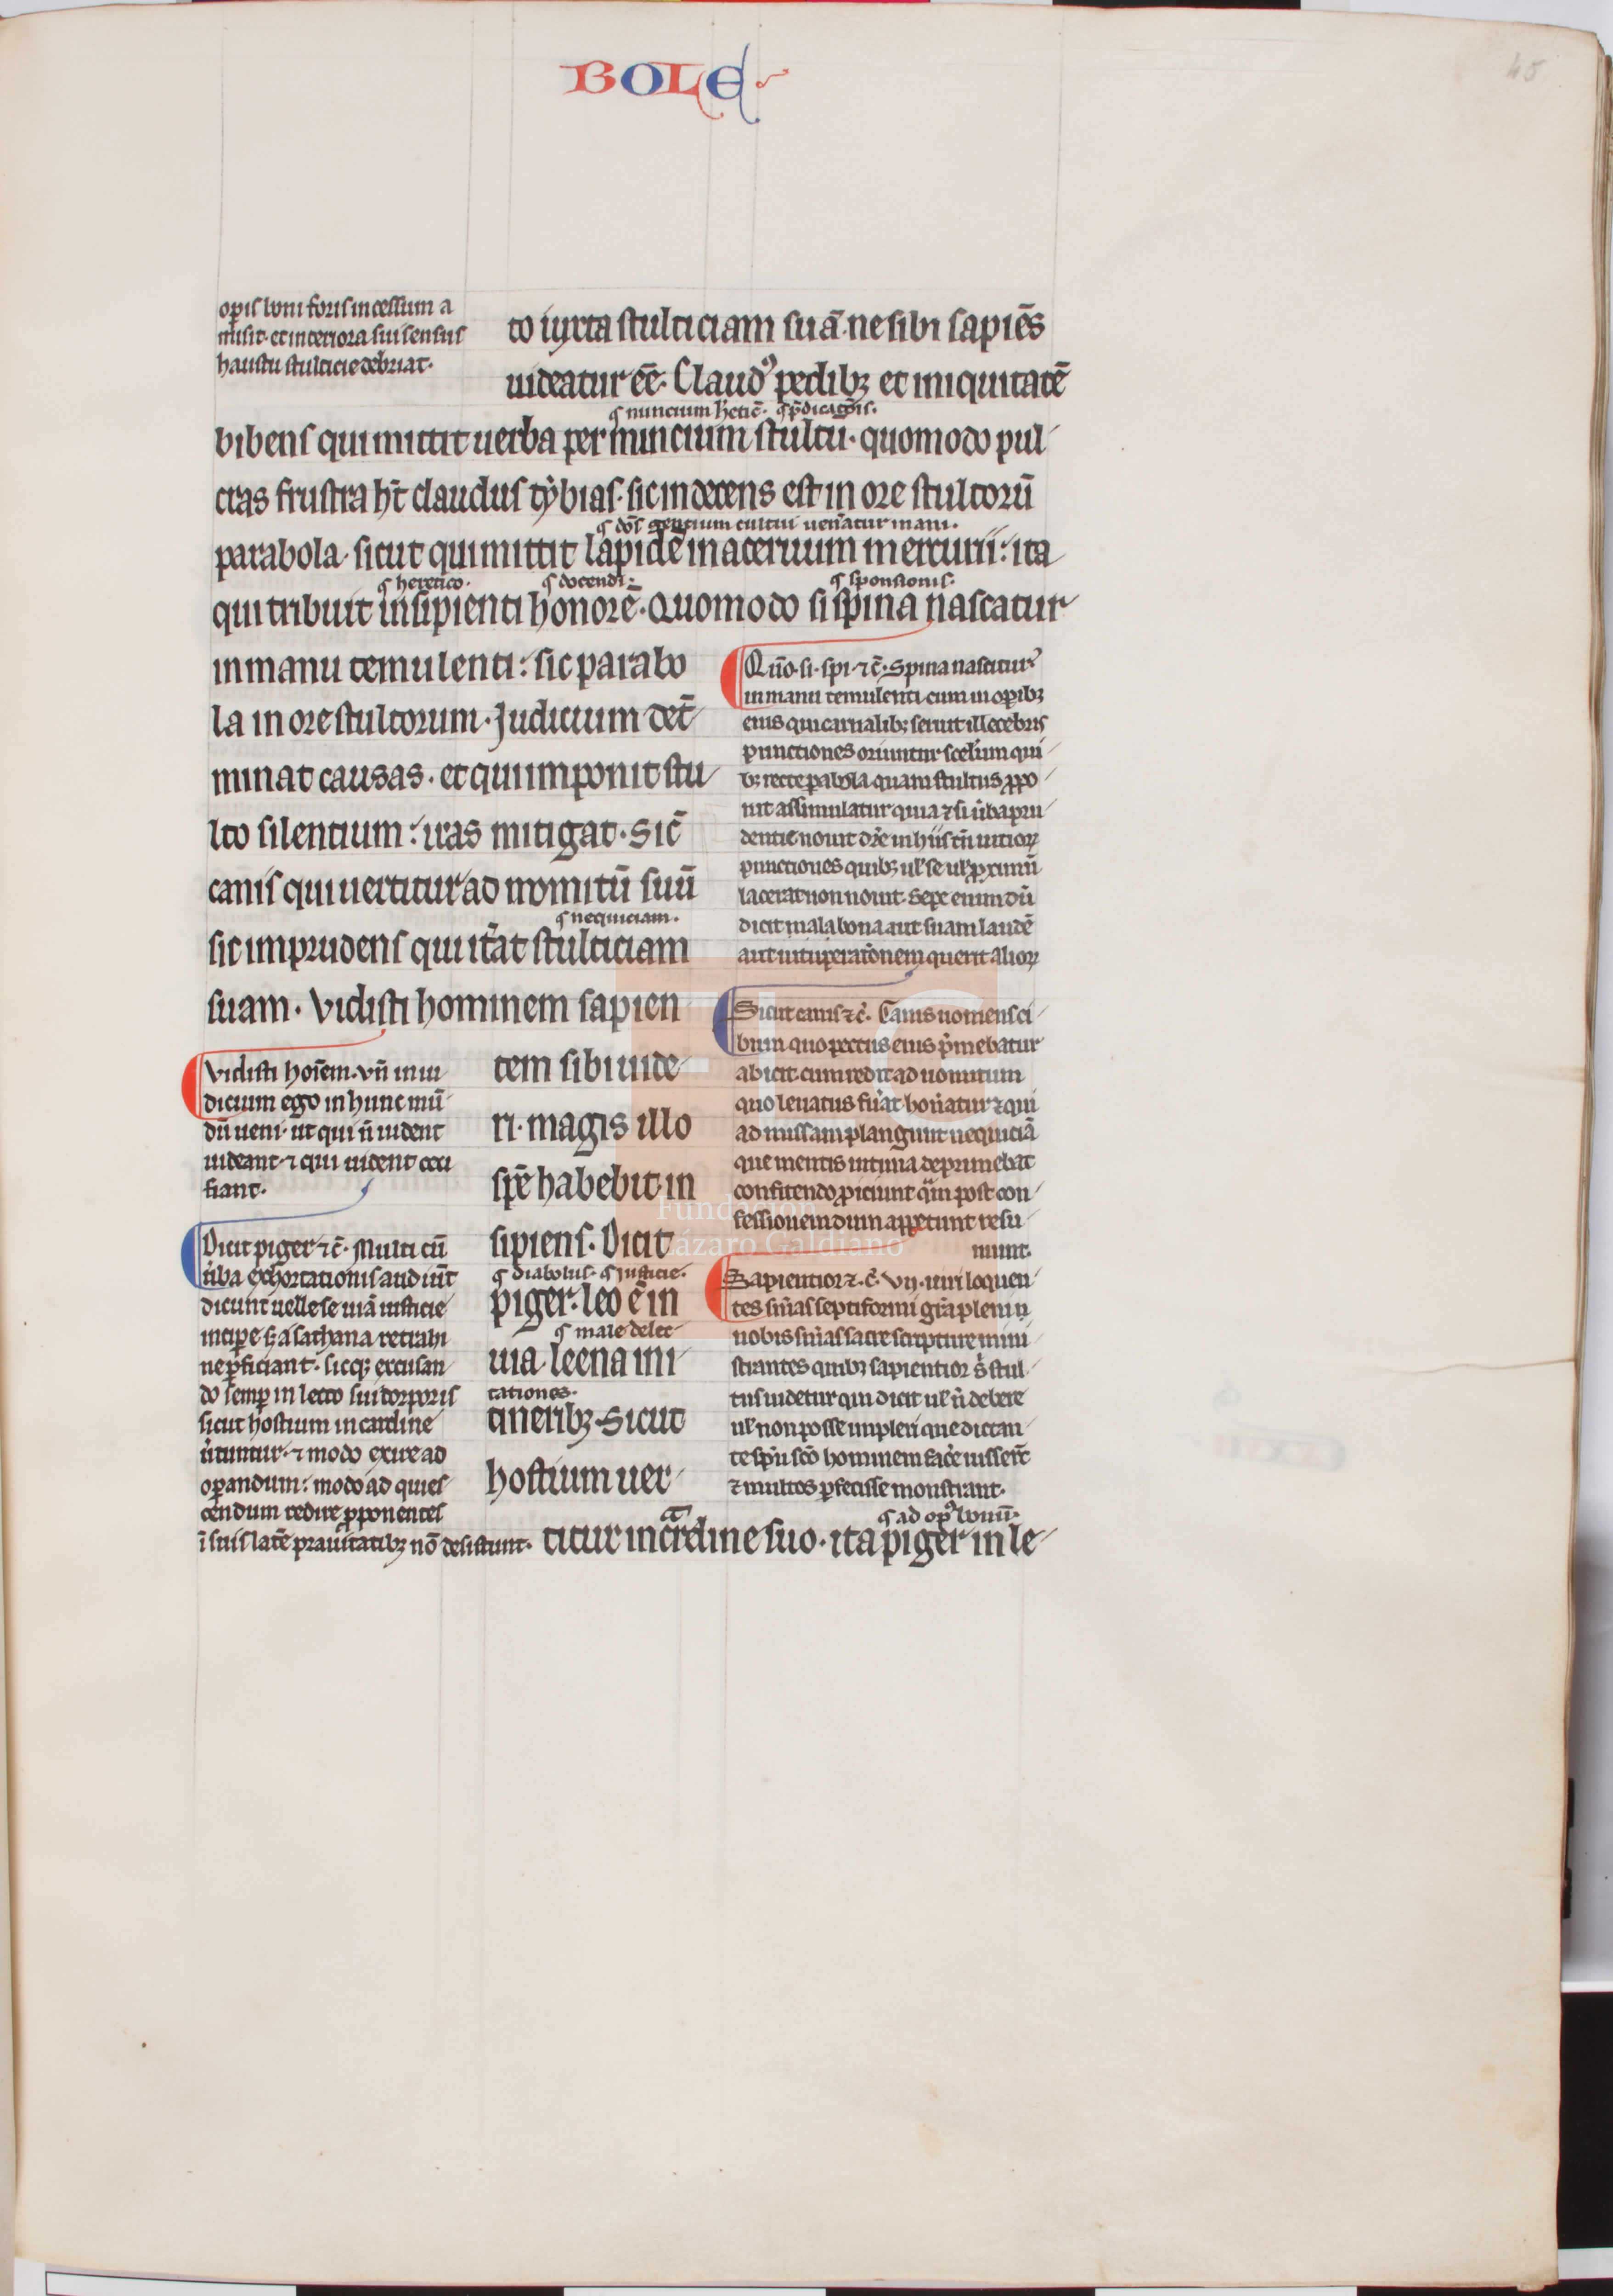 BOLE
45
op̱is boni foris incessum a
misit. et interiora sui sensus
haustu stulticie debriat.
to iuxta stulticiam suā. ne sibi sapiēs
uideatur eē. Claudꝰ pedibꝫ et iniquitatē
ꝗ nuncium h̓etic̄. ꝗ p̄dicatōis.
bibens qui mittit uerba per nuncium stultū. quomodo pul
cras frustra ht̄ claudus tẏbias. sic indecens est in ore stultorū
ꝗ dōs gentium cultui uen̄atur mani.
parabola. sicut qui mittit lapidē in aceruum mercurii: ita
ꝗ heretico. ꝗ docendi: ꝗ sponsionis.
qui tribuit insipienti honorē. Quomodo si spina nascatur
in manu temulenti: sic parabo
la in ore stultorum. Judicium det̄
minat causas. et qui imponit stu
lto silentium: iras mitigat. Sic̄
canis qui uertitur ad uomitū suū
ꝗ nequiciam.
sic imprudens qui it̄at stulticiam
suam. Vidisti hominem sapien
tem sibi uide
ri. magis illo
spē habebit in
sipiens. Dicit
ꝗ diabolus. ꝗ iusticie.
piger. leo ē in
ꝗ male delec
uia. leena ini
tationes.
tineribꝫ. Sicut
hostium uer
a ꝗ ad opꝰ bonū.
titur in crdine suo. ita piger in le
Quō. si. spi. ⁊c̄. Spina nascitur
in manu temulenti. cum in op̱ibꝫ
eius qui carnalibꝫ seruit illecebris
punctiones oriuntur scel̓um qui
bꝫ recte p̱abola quam stultus ꝓpo
nit assimulatur quia ⁊ si ūba pru
dentie nouit dr̄e in hiis tn̄ uitioꝝ
punctiones quibꝫ ul̓ se ul̓ ꝓximū
lacerat non nouit. Sepe enim dū
dicit mala bona aut suam laudē
aut uitup̱erationem querit alioꝝ
Sicut canis ⁊c̄. Canis uomens ci
bum quo pectus eius p̓mebatur
abicit. cum redit ad uomitum
quo leuatus fu̓at. hon̓atur ⁊ qui
ad missam plangunt nequiciā
que mentis intima deprimebat
confitendo ꝓiciunt quā post con
fessionem dum appetunt resu
munt.
Sapientior ⁊. c̄. Vij. uiri loquen
tes sn̄ias septiformi gr̄a pleni ū
nobis sn̄ias sacre scripture mini
strantes quibꝫ sapientior s̓ stul
tus uidetur qui dicit ul̓ ū debere
ul̓ non posse impleri que dictan
te spū sc̄o hominem fac̓e iusser̄t
⁊ multos p̱fecisse monstrant.
Vidisti hoīem. vn̄ in iu
dicium ego in hunc mū
dū ueni. ut qui ū uident
uideant. ⁊ qui uident ceci
fiant.
Dicit piger ⁊c̄. Multi cū
ūba exhortationis audiūt
dicunt uelle se uiā iusticie
incip̱e. s; a sathana retrahi
ne p̱ficiant. sicqꝫ excusan
do semp̱ in lecto sui torporis
sicut hostium in cardine
ūtuntur. ⁊ modo exire ad
op̱andum: modo ad quies
cendum redire ꝓponentes
ī suis latē prauitatibꝫ nō desistunt.
Fundación
Lázaro Galdiano